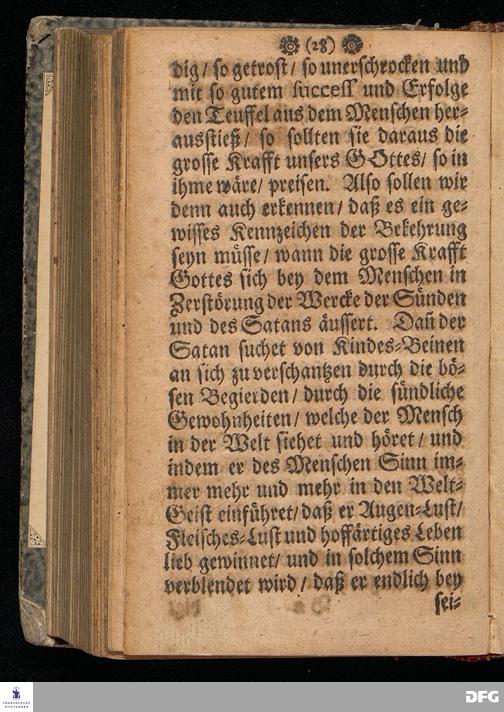 (28)
dig / so getrost / so unerschrocken und
mit so gutem success und Erfolge
den Teuffel aus dem Menschen her=
ausstieß / so sollten sie daraus die
grosse Krafft unsers GOttes / so in
ihme wäre / preisen. Also sollen wir
denn auch erkennen / daß es ein ge=
wisses Kennzeichen der Bekehrung
seyn müsse / wann die grosse Krafft
Gottes sich bey dem Menschen in
Zerstörung der Wercke der Sünden
und des Satans äussert. Dañ der
Satan suchet von Kindes=Beinen
an sich zu verschantzen durch die bö=
sen Begierden / durch die sündliche
Gewohnheiten / welche der Mensch
in der Welt siehet und höret / und
indem er des Menschen Sinn im=
mer mehr und mehr in den Welt=
Geist einführet / daß er Augen=Lust /
Fleisches=Lust und hoffärtiges Leben
lieb gewinnet / und in solchem Sinn
verblendet wird / daß er endlich bey
sei=
FRANCKESCHE
STIFTUNGEN
DFG